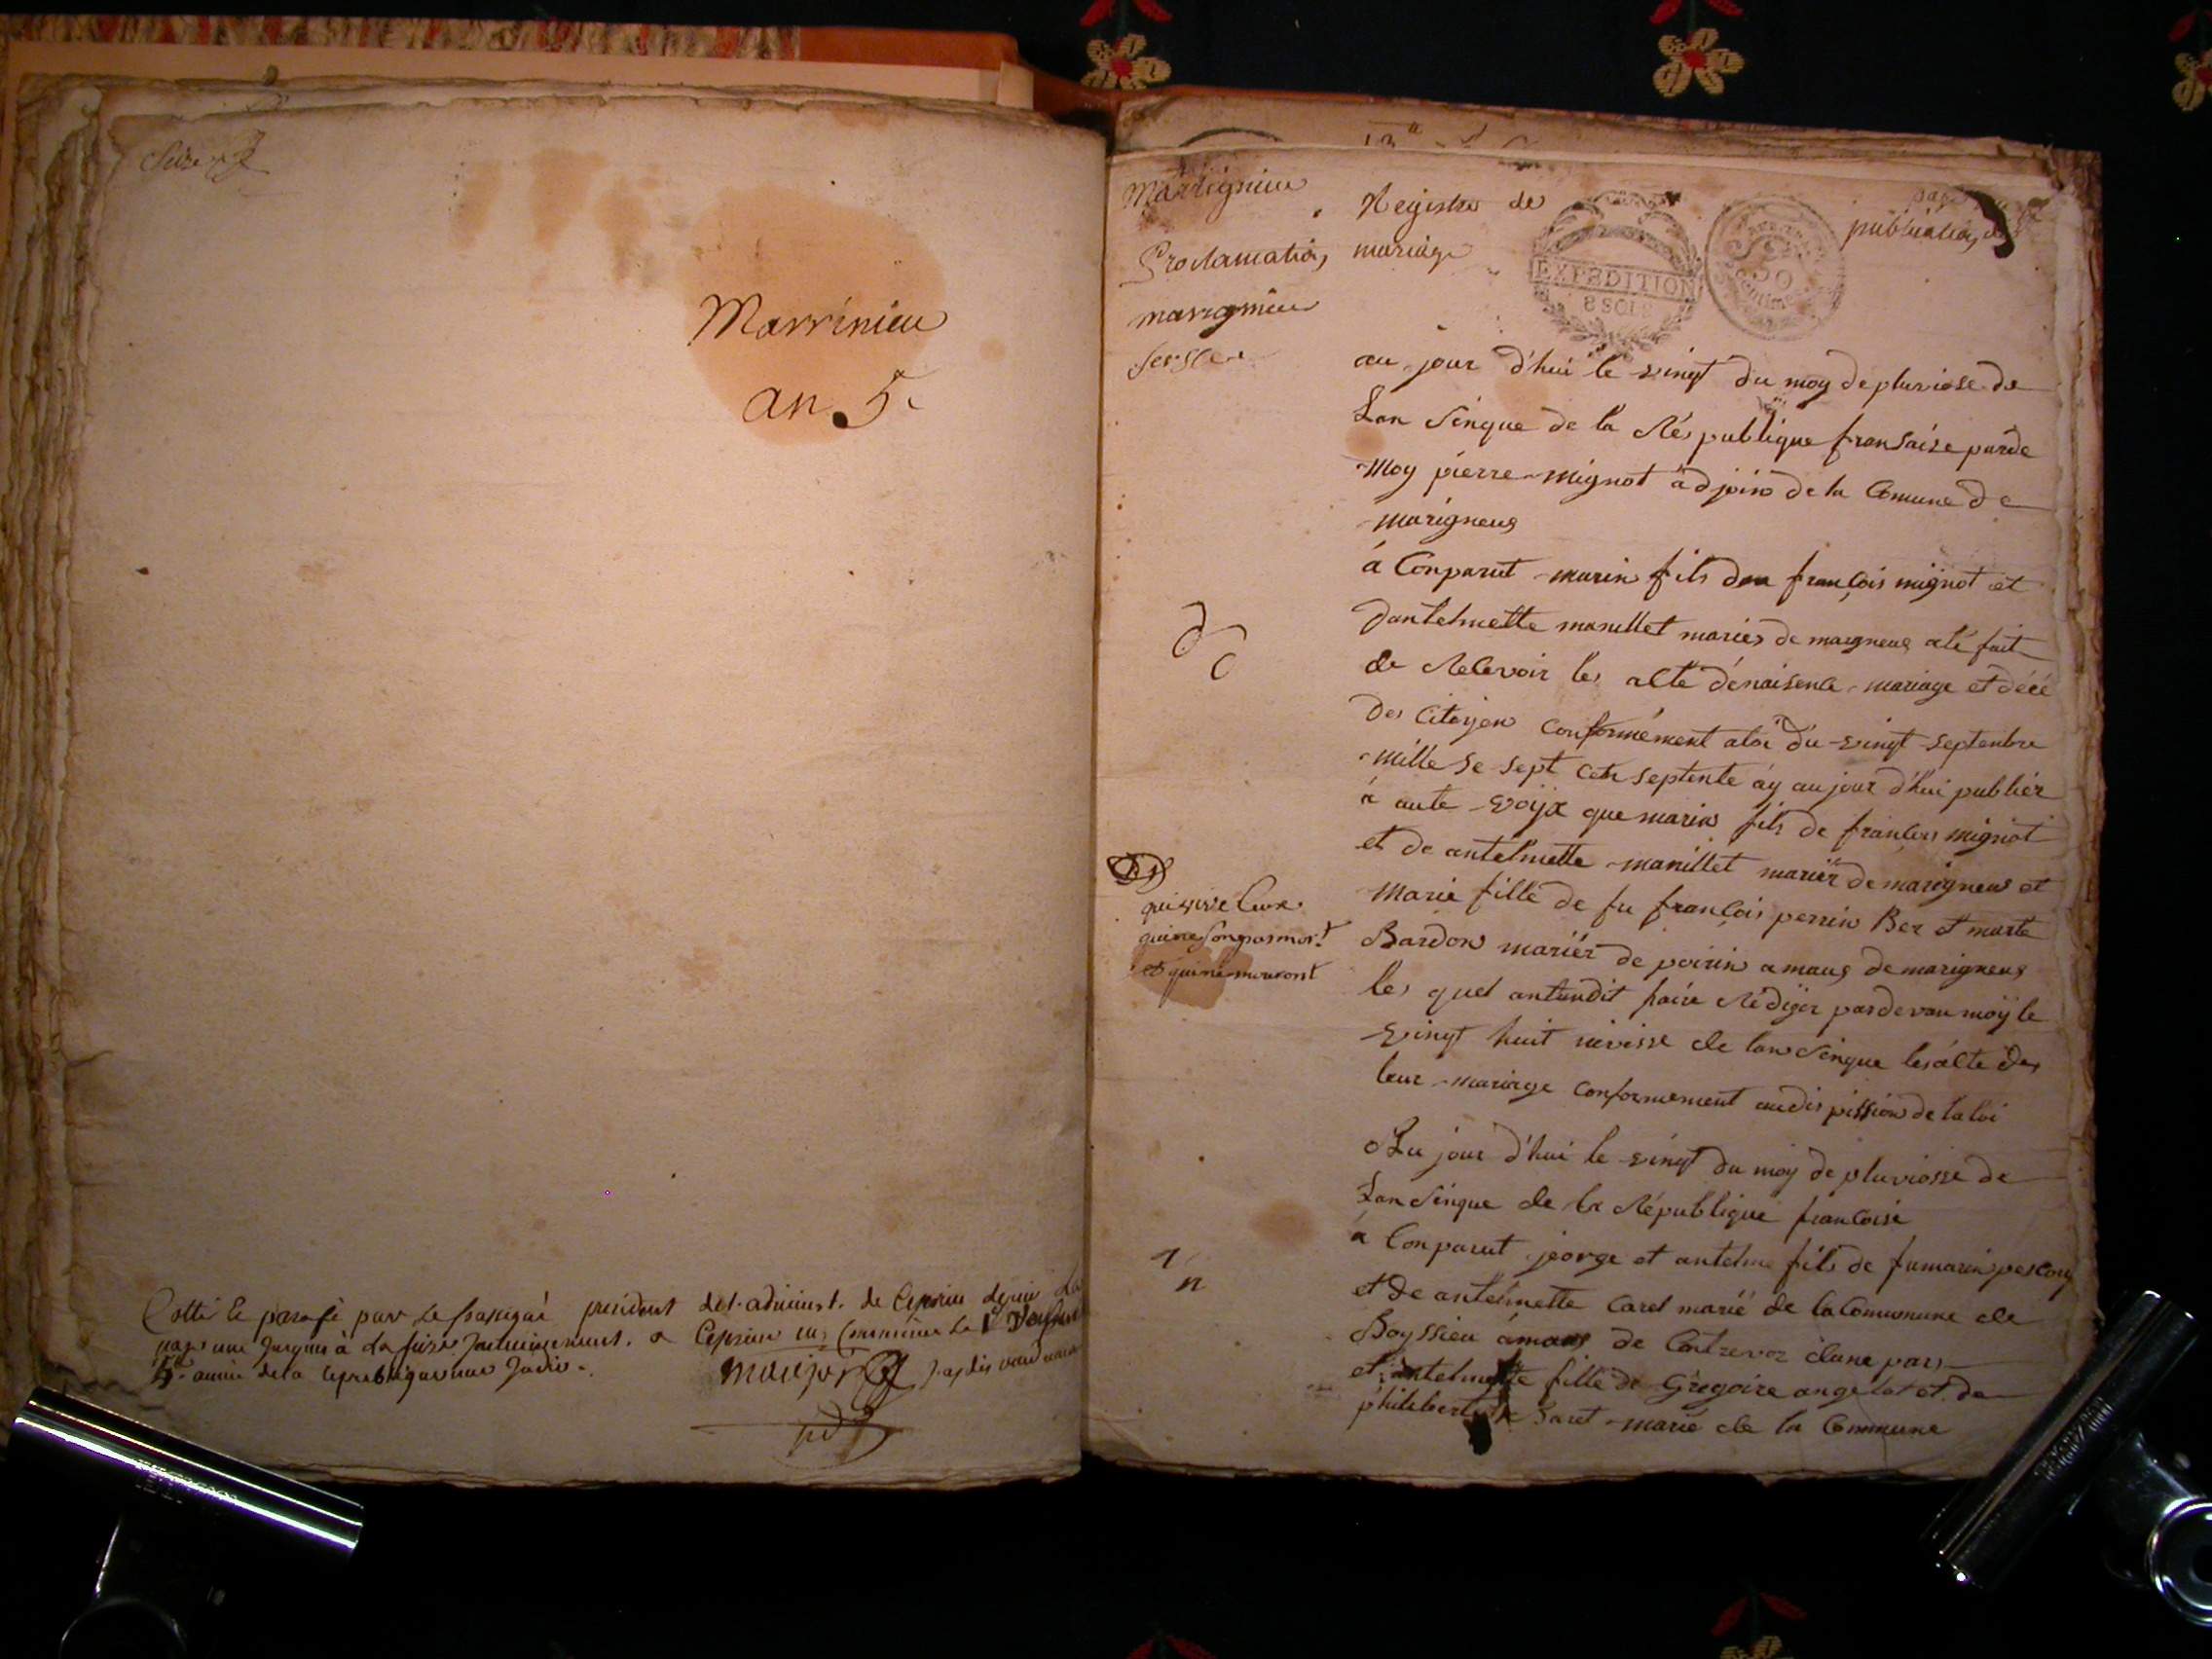 Seize
Marrinieu
an 5e
Cotté et parafé par le soussigné président de l'administ. de Ceyzrieu depuis la
page une jusques à la seize inclusivement. a Ceyzrieu
5e année de la republique une
Marignieu
Proclamation
marignieu
Registre de
mariage
publication de
EXPEDITION
8 SOLS
50
centimes
au jour d'hui le vingt du moy de pluviose de
Lan Sinque de la Républigue fransaise parde
Moy pierre Mignot adjoin de la Comune de
marigneus
á Conparut marin fils deu françois mignot et
dantelmette manillet mariés de marigneus até fait
de Relevoir les alte dénaisence mariage et décé
des Citoyen conformément aloi du vingt septenbre
mille se sept cen septente áy au jour d'hui publiér
à aute voijx que marin fils de françois mignot
et de antelmette manillet mariér de marigneus et
Marie fille de fu françois perrin Ber et marte
Bardon mariér de poirin amaus de marigneus
les quel antandit faire Rédiger pardevan moÿ le
vingt huit nivisse de lan Sinque lesalte des
leur mariage conformement audispission de la loi
qui vive
qui ne son pas mort
et qui ne mouront
Au jour d'hui le vingt du moy de pluviosse de
Lan Sinque de la Républigue françoise
a Conparut jeorge et antelme fils de fumarin pescony
et de antelmette Caret marié de la Commune de
Boyssieu amaus de Contrevoz dune pars
et antelmette fille de Grégoire angelot et de
philiberte Baret marié de la Commune